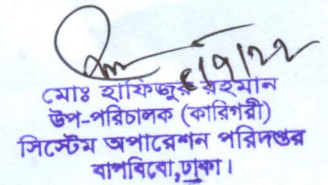 ৫/৭/২২
মোঃ হাফিজুর রহমান
উপ-পরিচালক (কারিগরী)
সিস্টেম অপারেশন পরিদপ্তর
বাপবিবো,ঢাকা।